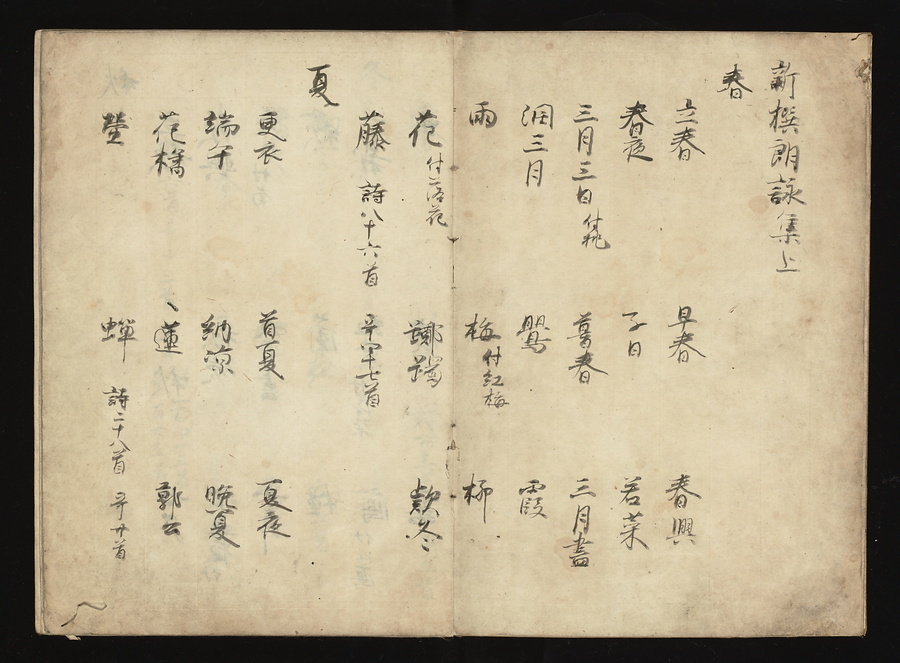 新撰朗詠集上
春
立春 早春 春興
春夜 子日 若菜
三月三日付桃 暮春 三月盡
潤三月 鶯 霞
雨 梅付紅梅 柳
花付落花 躑躅 款冬
藤 詩八十六首 哥四十七首
夏
更衣 首夏 夏夜
端午 納涼 晩夏
花橘 蓮 郭公
螢 蟬 詩二十八首 哥廿首